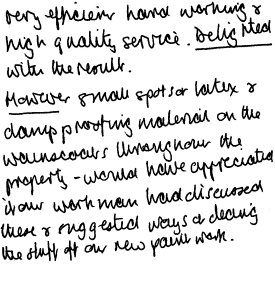 very efficient hard working &
high quality service. Delighted
with the result.
However small spots of latex &
damp proofing material on the
wainscots throughout the
property - would have appreciated
if our workman had discussed
these & suggested ways of clearing
the stuff off our new paint work.